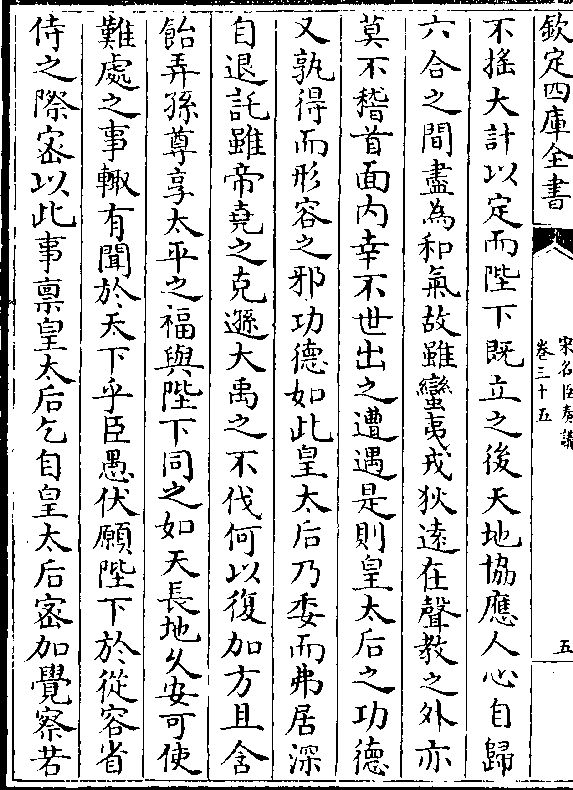 欽定四庫全書
宋名臣奏議
卷三十五
五
不搖大計以定而陛下既立之後天地協應人心自歸
六合之間盡為和氣故雖蠻夷戎狄逺在聲教之外亦
莫不稽首面内幸不世出之遭遇是則皇太后之功德
又孰得而形容之邪功德如此皇太后乃委而弗居深
自退託雖帝堯之克遜大禹之不伐何以復加方且含
飴弄孫尊享太平之福與陛下同之如天長地久安可使
難處之事輙有聞於天下乎臣愚伏願陛下於從容省
侍之際宻以此事禀皇太后乞自皇太后宻加覺察若